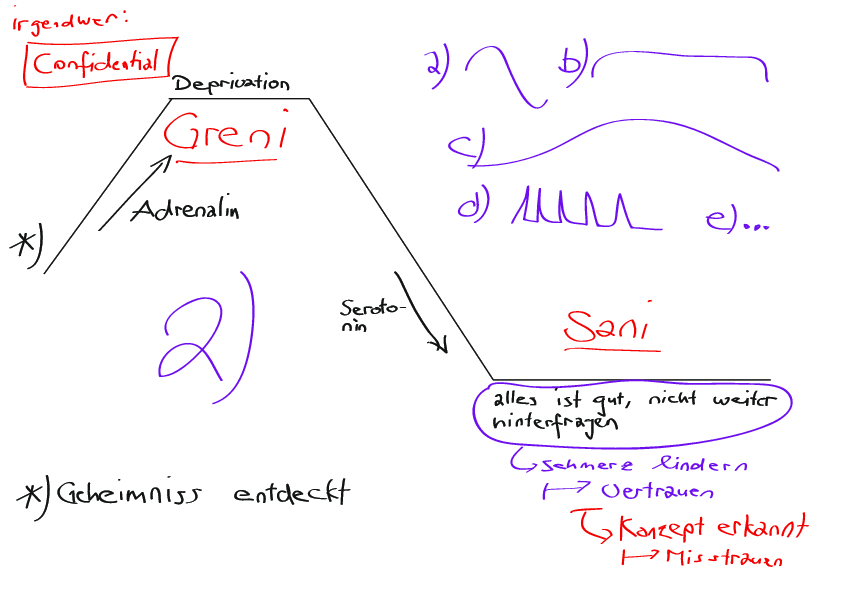 irgendwer:
Confidential
Deprivation
Greni
Adrenalin
*)
a)
b)
c)
d)
e)...
2)
Seroto-
nin
Sani
alles ist gut, nicht weiter
hinterfragen
Schmerz lindern
Vertrauen
Konzept erkannt
Misstrauen
*) Geheimniss entdeckt